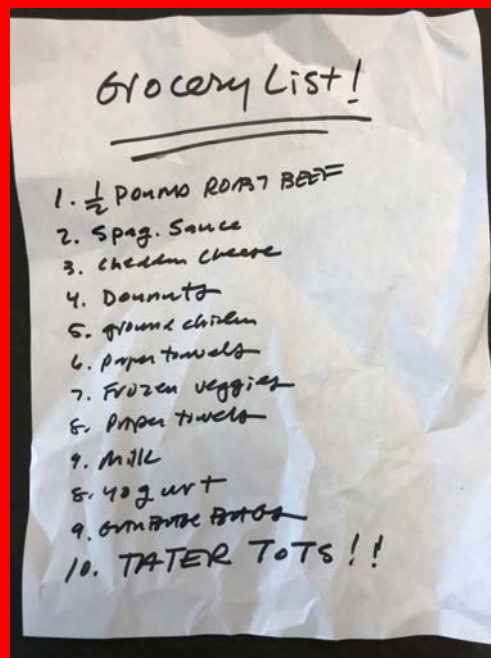 Grocery List!
1. 1/2 POUND ROAST BEEF
2. Spag. Sauce
3. Cheddar cheese
4. Dounuts
5. ground chicken
6. paper towels
7. Frozen veggies
8. Paper towels
9. Milk
8. yogurt
9. GARBAGE BAGS
10. TATER TOTS!!